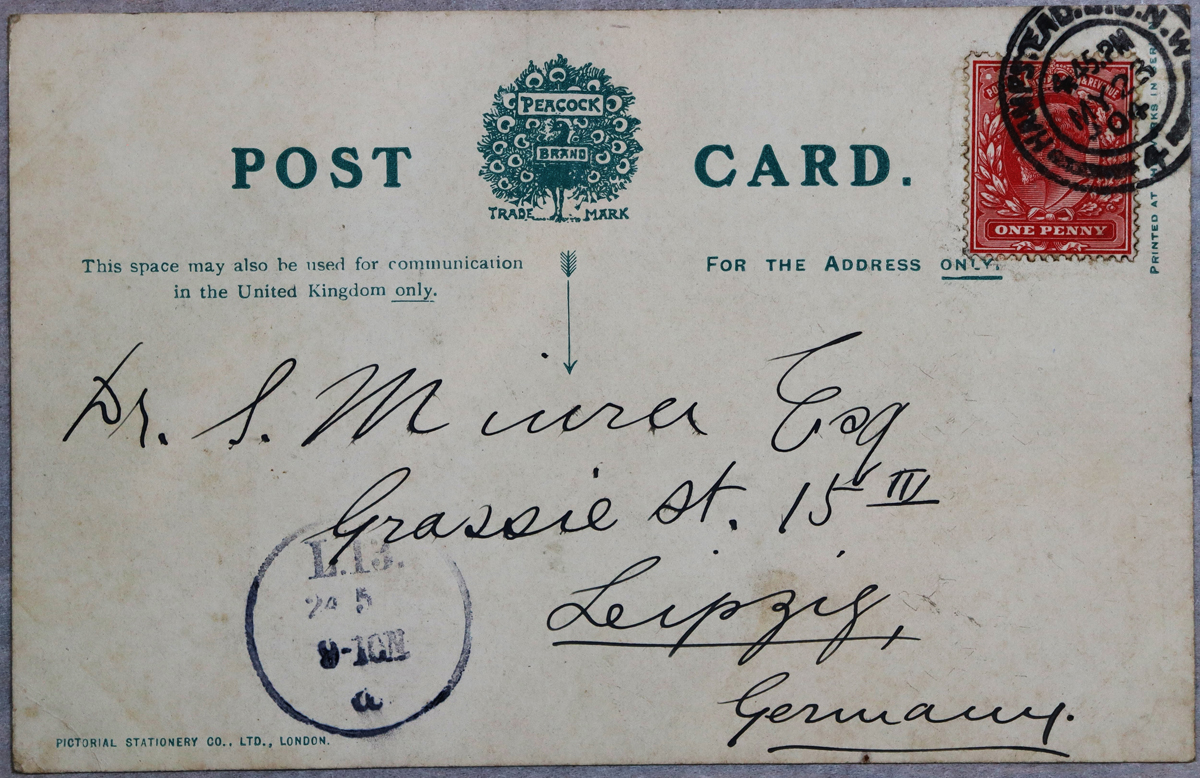 POST CARD.
PEACOCK
BRAND
TRADE MARK
HAMPSTEAD. N.W.
4.45.PM
MY 23
04
4
POSTAGE & REVENUE
ONE PENNY
PRINTED AT
This space may also be used for communication
in the United Kingdom only.
FOR THE ADDRESS ONLY.
Dr. S. Miura Esq
Grassie St. 15 III
Leipzig,
Germany.
L.13.
24 5
9-10N
a
PICTORIAL STATIONERY CO., LTD., LONDON.